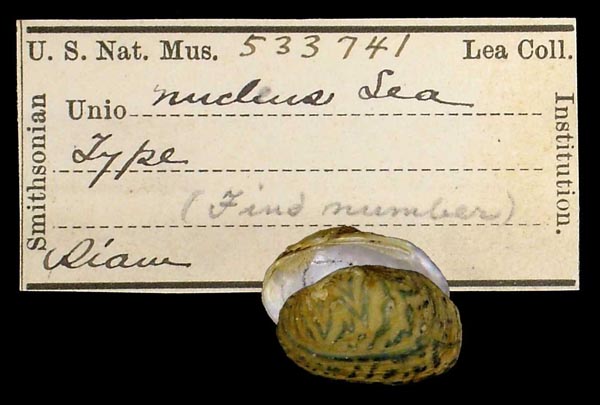 U. S. Nat. Mus. 533741 Lea Coll.
Unio nucleus Lea
Type
(Find number)
Siam
Smithsonian
Institution.